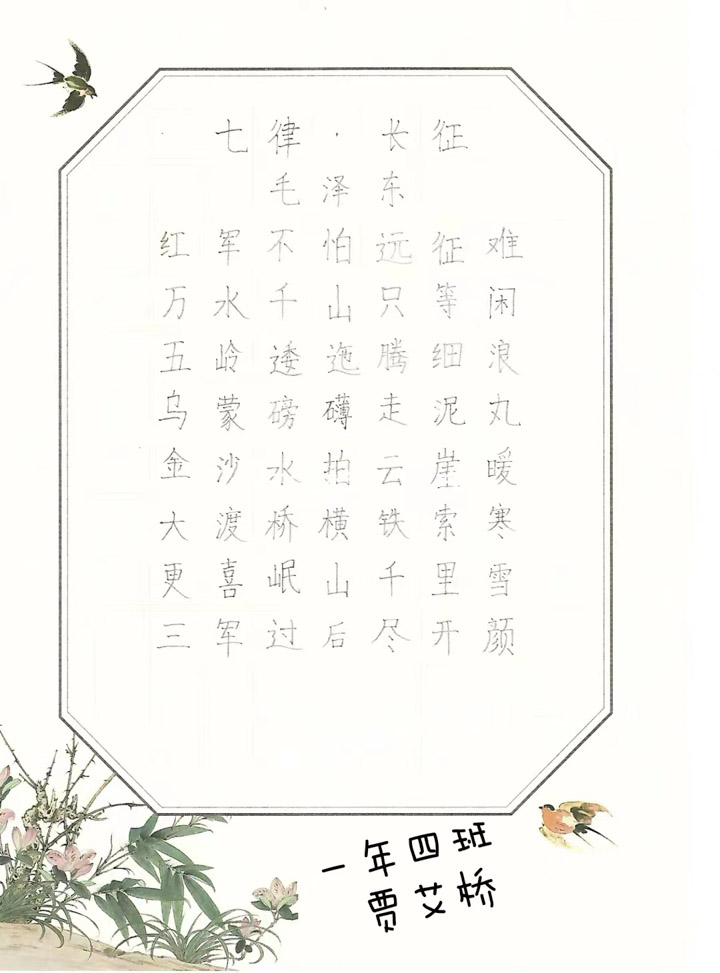 七律·长征
毛泽东
红军不怕远征难
万水千山只等闲
五岭逶迤腾细浪
乌蒙磅礴走泥丸
金沙水拍云崖暖
大渡桥横铁索寒
更喜岷山千里雪
三军过后尽开颜
一年四班
贾艾桥